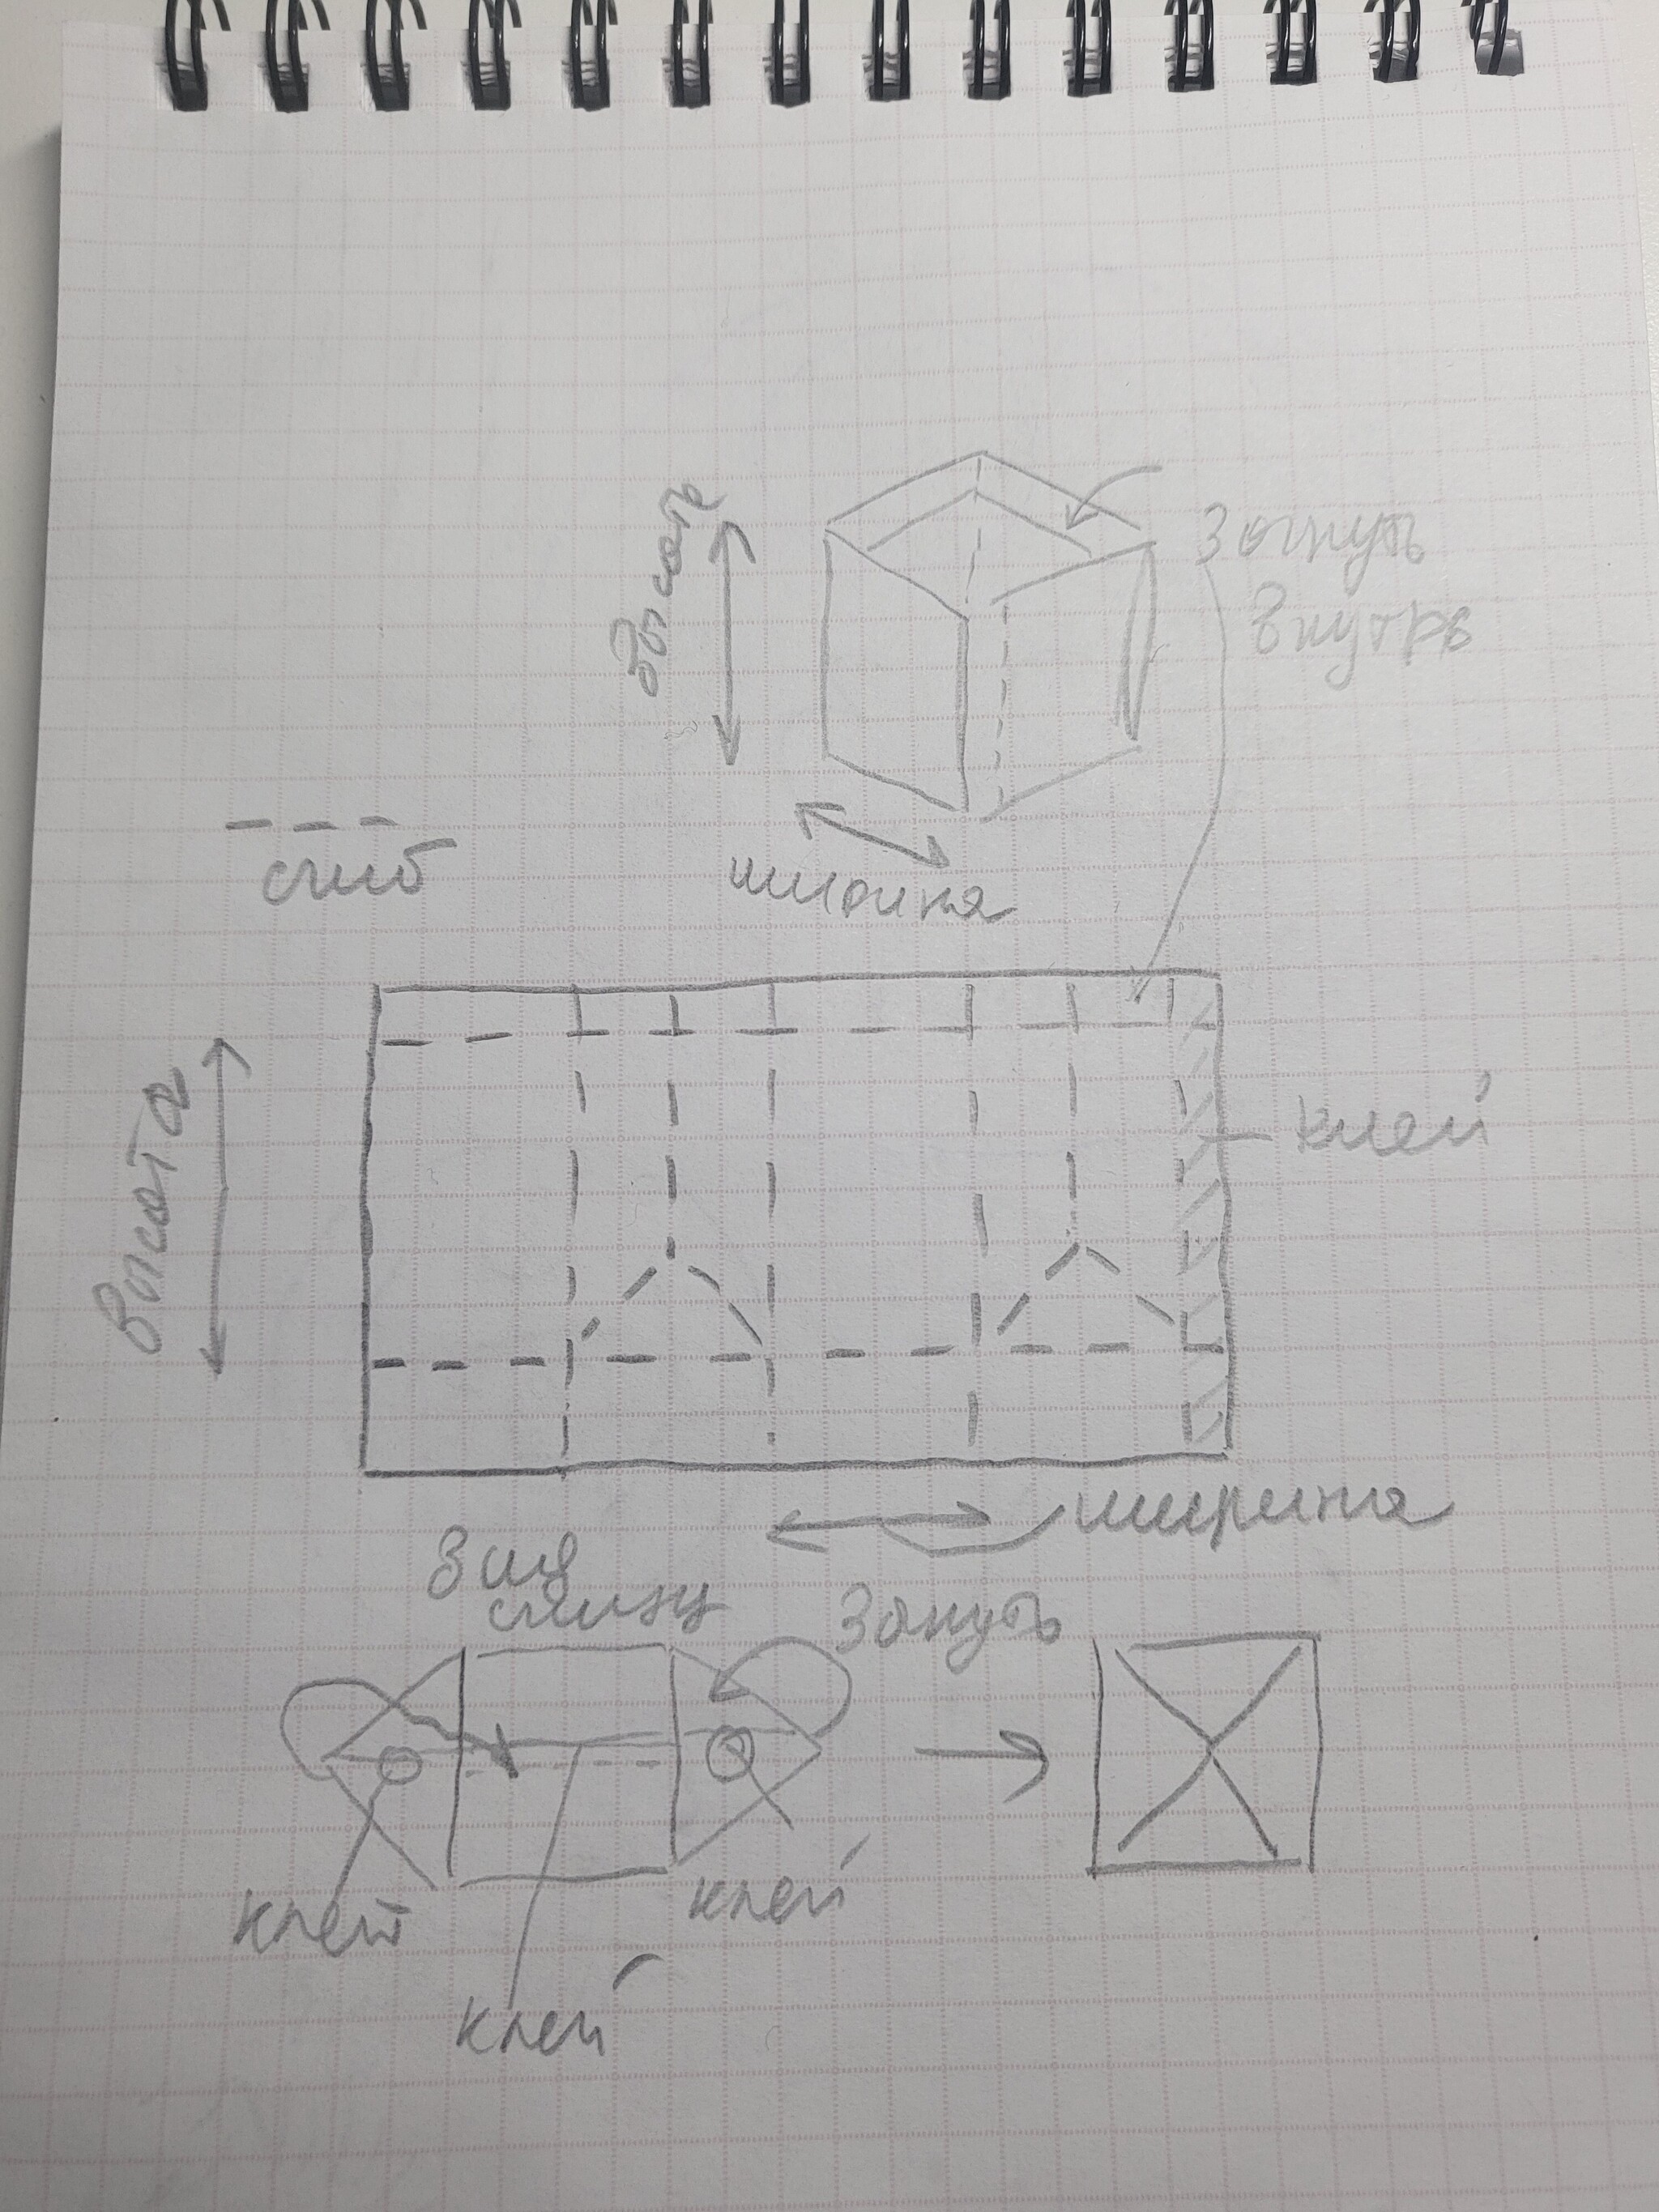 высота
Загнуть
внутрь
ширина
сгиб
Высота
клей
ширина
Вид
снизу
Загнуть
клей
клей
клей